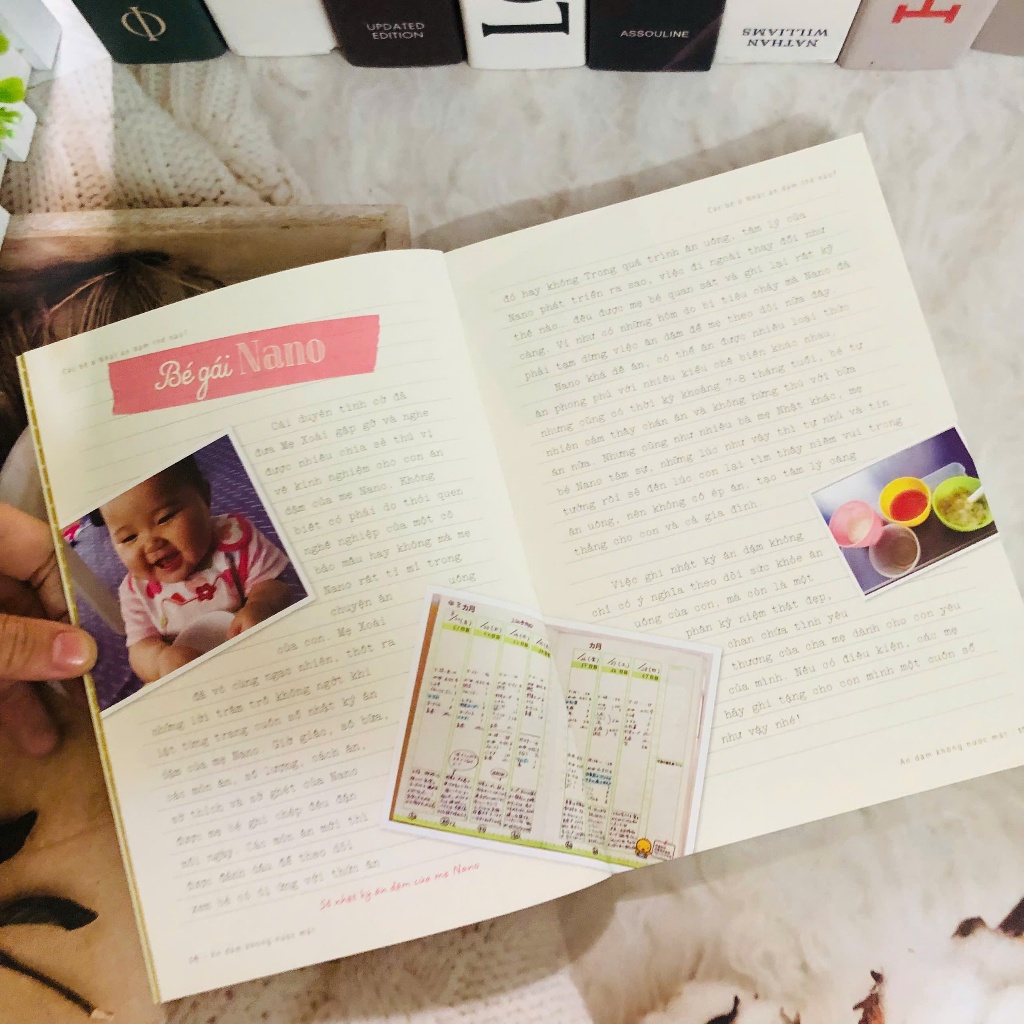 Φ
UPDATED
EDITION
ASSOULINE
NATHAN
WILLIAMS
Các bé ở Nhật ăn dặm thế nào?
Bé gái Nano
Cái duyên tình cờ đã
đưa Mẹ Xoài gặp gỡ và nghe
được nhiều chia sẻ thú vị
về kinh nghiệm cho con ăn
dặm của mẹ Nano. Không
biết có phải do thói quen
nghề nghiệp của một cô
bảo mẫu hay không mà mẹ
Nano rất tỉ mỉ trong
chuyện ăn uống
của con. Mẹ Xoài
đã vô cùng ngạc nhiên, thốt ra
những lời trầm trồ không ngớt khi
lật từng trang cuốn sổ nhật ký ăn
dặm của mẹ Nano. Giờ giấc, số bữa,
các món ăn, số lượng, cách ăn,
sở thích và sở ghét của Nano
được mẹ bé ghi chép đều đặn
mỗi ngày. Các món ăn mới thì
được đánh dấu để theo dõi
xem bé có dị ứng với thức ăn
Sổ nhật ký ăn dặm của mẹ Nano
Ăn dặm không nước mắt
Các bé ở Nhật ăn dặm thế nào?
đó hay không Trong quá trình ăn uống, tâm lý của
Nano phát triển ra sao, việc đi ngoài thay đổi như
thế nào đều được mẹ bé quan sát và ghi lại rất kỹ
càng. Ví như có những hôm do bị tiêu chảy mà Nano đã
phải tạm dừng việc ăn dặm để mẹ theo dõi nửa đây
Nano khá dễ ăn, có thể ăn được nhiều loại thức
ăn phong phú với nhiều kiểu chế biến khác nhau,
nhưng cũng có thời kỳ khoảng 7-8 tháng tuổi, bé tự
nhiên cảm thấy chán ăn và không hứng thú với bữa
ăn nữa. Nhưng cũng như nhiều bà mẹ Nhật khác, mẹ
bé Nano tâm sự, những lúc như vậy thì tự nhủ và tin
tưởng rồi sẽ đến lúc con lại tìm thấy niềm vui trong
ăn uống, nên không cố ép ăn, tạo tâm lý căng
thẳng cho con và cả gia đình.
Việc ghi nhật ký ăn dặm không
chỉ có ý nghĩa theo dõi sức khỏe ăn
uống của con, mà còn là một
phần kỷ niệm thật đẹp,
chan chứa tình yêu
thương của cha mẹ dành cho con yêu
của mình. Nếu có điều kiện, các mẹ
hãy ghi tặng cho con mình một cuốn sổ
như vậy nhé!
Ăn dặm không nước mắt